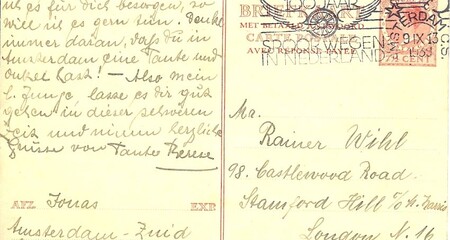 uls es für dich besorgen, so
wie uls es gern tun. Denke
immer daran, daß du in
Amsterdam eine Tante und
Onkel hast! — Also mein
l. Junge lasse es dir gut
gehen in dieser schweren
Zeit und nimm herzliche
Grüsse von Tante Berese
AFZ. Jonas EXP.
Amsterdam-Zuid
BRIEFKAART
MET BETAALD
CARTE
AVEC RÉPONSE
100 JAAR
SPOORWEGEN
IN NEDERLAND
AMSTERDAM C.S.
9 IX 13
1939
CENT
Mr.
Rainer Wihl
98. Castlewood Road.
Stamford Hill c/o H. Harris
London N. 16